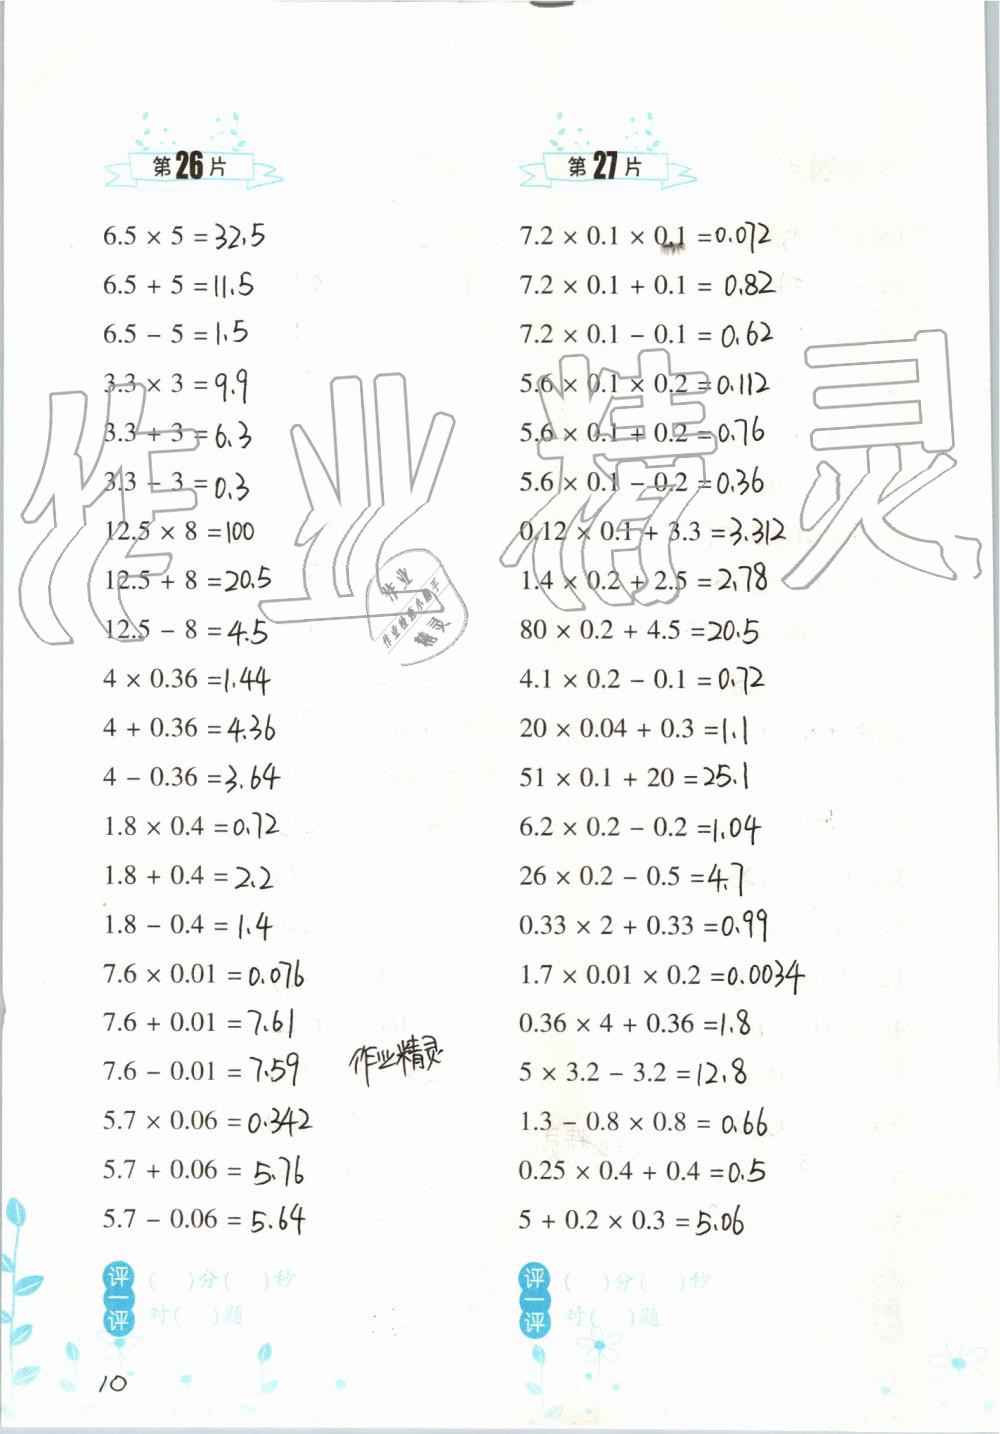 第26片
6.5 × 5 = 32.5
6.5 + 5 = 11.5
6.5 − 5 = 1.5
3.3 × 3 = 9.9
3.3 + 3 = 6.3
3.3 − 3 = 0.3
12.5 × 8 = 100
12.5 + 8 = 20.5
12.5 − 8 = 4.5
4 × 0.36 = 1.44
4 + 0.36 = 4.36
4 − 0.36 = 3.64
1.8 × 0.4 = 0.72
1.8 + 0.4 = 2.2
1.8 − 0.4 = 1.4
7.6 × 0.01 = 0.076
7.6 + 0.01 = 7.61
7.6 − 0.01 = 7.59
作业精灵
5.7 × 0.06 = 0.342
5.7 + 0.06 = 5.76
5.7 − 0.06 = 5.64
评一评
( )分( )秒
对( )题
10
第27片
7.2 × 0.1 × 0.1 = 0.072
7.2 × 0.1 + 0.1 = 0.82
7.2 × 0.1 − 0.1 = 0.62
5.6 × 0.1 × 0.2 = 0.112
5.6 × 0.1 + 0.2 = 0.76
5.6 × 0.1 − 0.2 = 0.36
0.12 × 0.1 + 3.3 = 3.312
1.4 × 0.2 + 2.5 = 2.78
80 × 0.2 + 4.5 = 20.5
4.1 × 0.2 − 0.1 = 0.72
20 × 0.04 + 0.3 = 1.1
51 × 0.1 + 20 = 25.1
6.2 × 0.2 − 0.2 = 1.04
26 × 0.2 − 0.5 = 4.7
0.33 × 2 + 0.33 = 0.99
1.7 × 0.01 × 0.2 = 0.0034
0.36 × 4 + 0.36 = 1.8
5 × 3.2 − 3.2 = 12.8
1.3 − 0.8 × 0.8 = 0.66
0.25 × 0.4 + 0.4 = 0.5
5 + 0.2 × 0.3 = 5.06
评一评
( )分( )秒
对( )题
作业精灵
作业
作业检查小助手
精灵